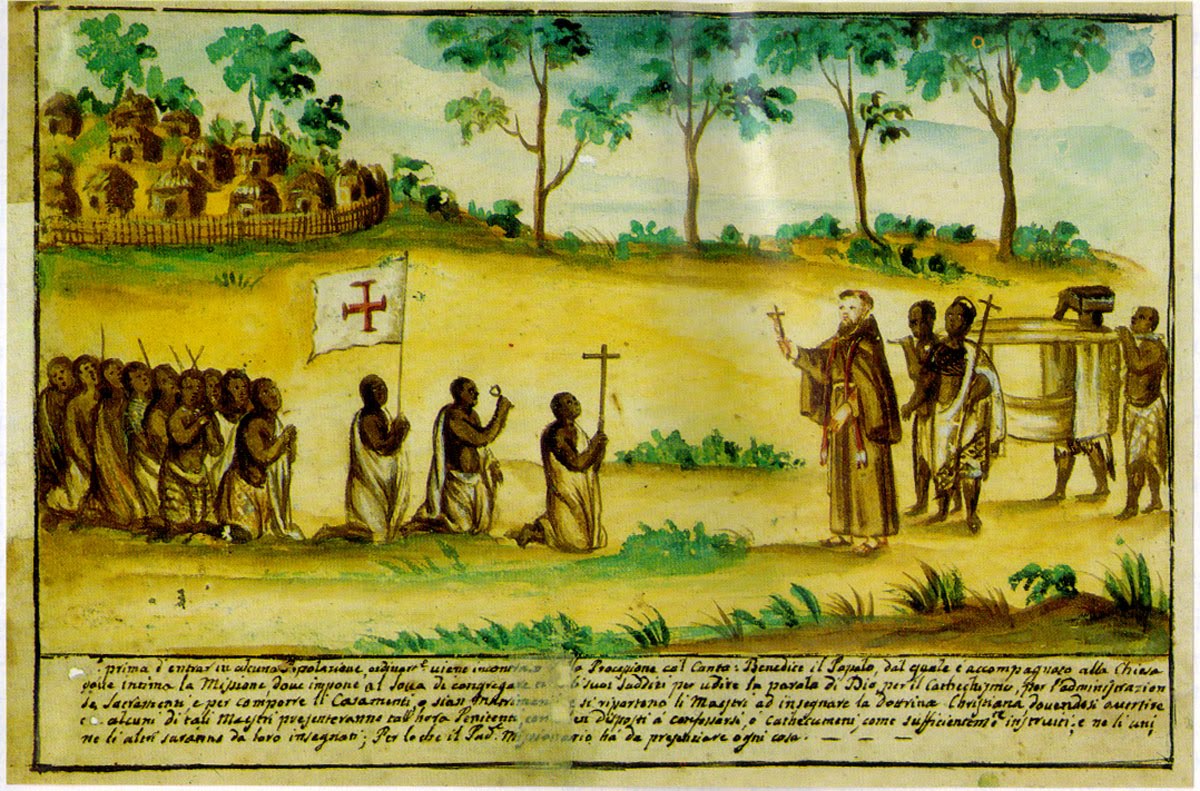 prima d'entrar in alcuna Popolazione, ordinarte viene incontrato Processione col Canto: Benedice il Popolo, dal quale è accompagnato alla Chiesa
intima la Missione, doue impone al Soua di congregare suoi sudditi per udire la parola di Dio, per il Cathechismo, per l'administrazion
de Sacramenti, e per comporre li Casamenti, o sian Matrimoni e si riportano li Maestri ad insegnare la Dottrina Christiana, douendosi auertire
alcuni di tali Maestri presenteranno tal'hora Penitenti, disposti a confessarsi, o Cathecumeni come sufficientemte instruiti; e ne li uni,
ne li altri saranno da loro insegnati; Per loche il Padre Missionario ha da presenziare ogni cosa.